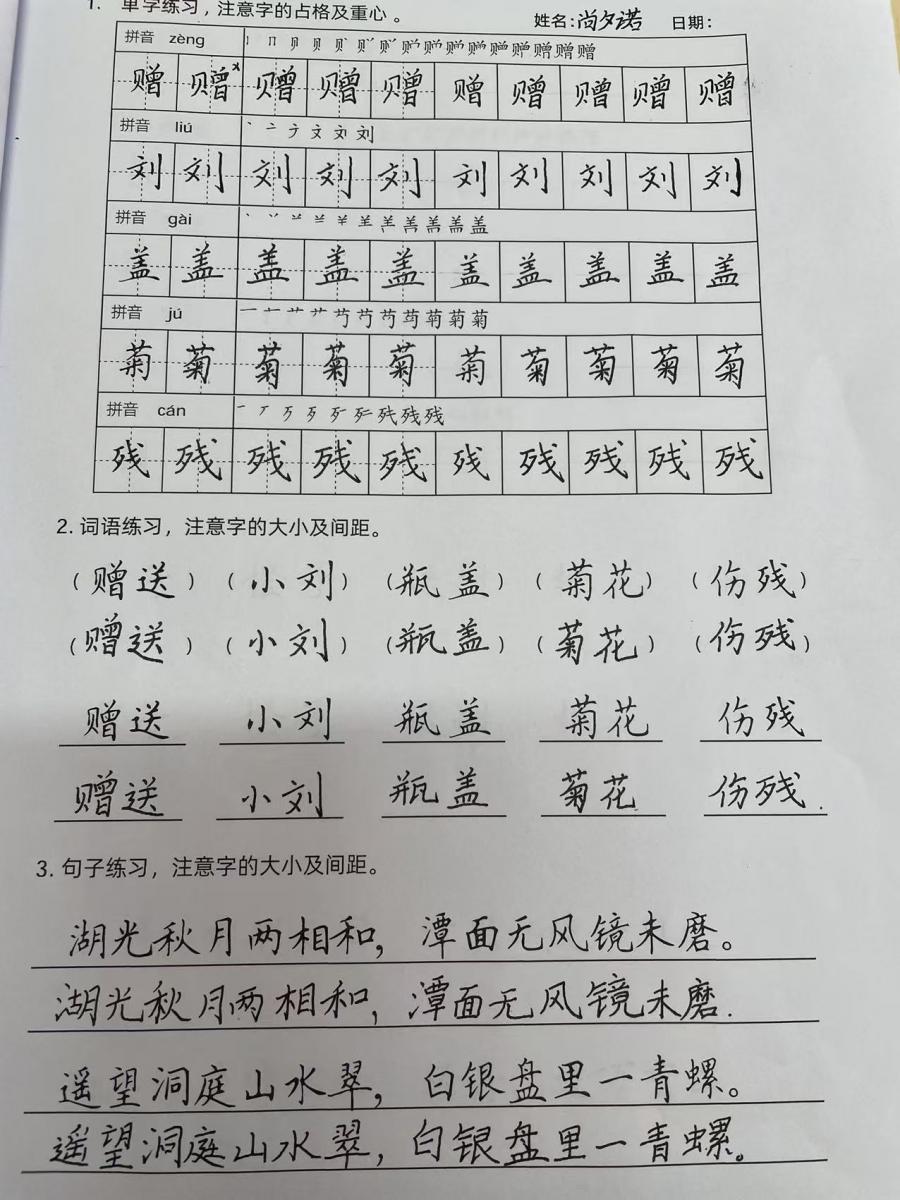 1. 单字练习，注意字的占格及重心。 姓名:尚夕诺 日期:
拼音 zèng
赠 赠 赠 赠 赠 赠 赠 赠 赠 赠
拼音 liú
刘 刘 刘 刘 刘 刘 刘 刘 刘 刘
拼音 gài
盖 盖 盖 盖 盖 盖 盖 盖 盖 盖
拼音 jú
菊 菊 菊 菊 菊 菊 菊 菊 菊 菊
拼音 cán
残 残 残 残 残 残 残 残 残 残
2. 词语练习，注意字的大小及间距。
（赠送）（小刘）（瓶盖）（菊花）（伤残）
（赠送）（小刘）（瓶盖）（菊花）（伤残）
赠送 小刘 瓶盖 菊花 伤残
赠送 小刘 瓶盖 菊花 伤残.
3. 句子练习，注意字的大小及间距。
湖光秋月两相和，潭面无风镜未磨。
湖光秋月两相和，潭面无风镜未磨.
遥望洞庭山水翠，白银盘里一青螺。
遥望洞庭山水翠，白银盘里一青螺。